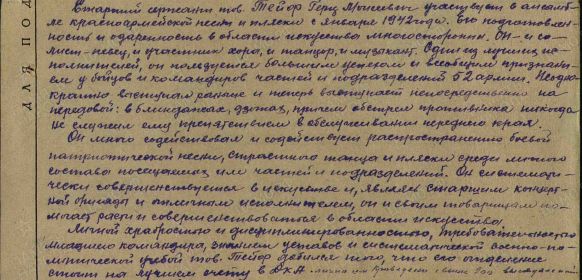 Старший сержант тов. Тейф Герц Моисеевич участвует в ансамб-
ле красноармейской песни и пляски с января 1942 года. Его подготовлен-
ность и одаренность в области искусства многосторонни. Он – и со-
лист-певец, и участник хора, и танцор, и музыкант. Один из лучших ис-
полнителей, он пользуется большим успехом и всеобщим признани-
ем у бойцов и командиров частей и подразделений 52 армии. Неодно-
кратно выступал раньше и теперь выступает непосредственно на
передовой: в блиндажах, дзотах, причем обстрел противника никогда
не служил ему препятствием в обслуживании переднего края.
Он много содействовал и содействует распространению боевой
патриотической песни, страстного танца и пляски среди личного
состава посещаемых им частей и подразделений. Он системати-
чески совершенствуется в искусстве и, являясь старшим концерт-
ной бригады и отличным исполнителем, он и своим товарищам по-
могает расти и совершенствоваться в области искусства.
Личной храбростью и дисциплинированностью, требовательностью
младшего командира, знанием уставов и систематической военно-по-
литической учебой тов. Тейф добился того, что его отделение
стоит на лучшем счету в ДКА
ДЛЯ ПОД